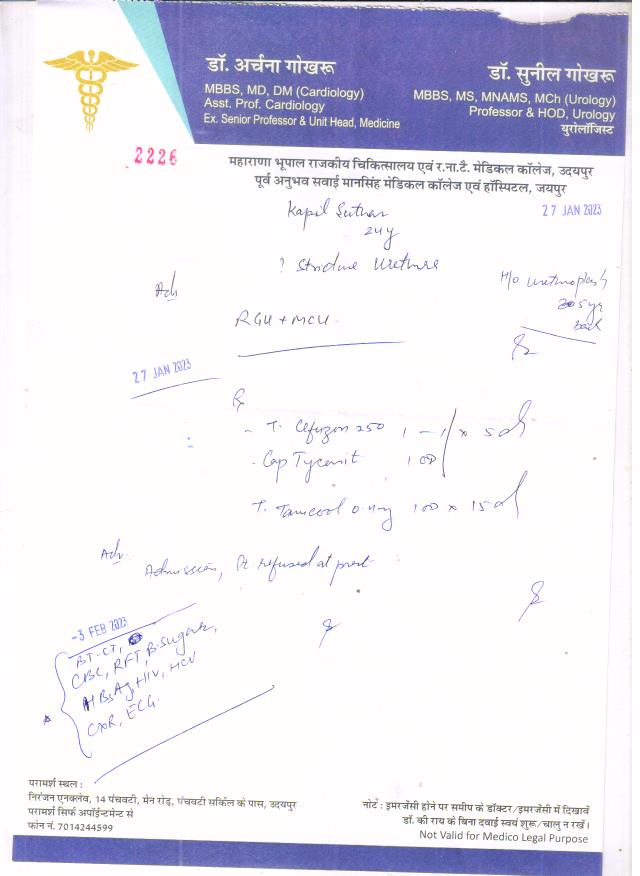 डॉ. अर्चना गोखरू
MBBS, MD, DM (Cardiology)
Asst. Prof. Cardiology
Ex. Senior Professor & Unit Head, Medicine
डॉ. सुनील गोखरू
MBBS, MS, MNAMS, MCh (Urology)
Professor & HOD, Urology
यूरोलॉजिस्ट
2226
महाराणा भूपाल राजकीय चिकित्सालय एवं र.ना.टै. मेडिकल कॉलेज, उदयपुर
पूर्व अनुभव सवाई मानसिंह मेडिकल कॉलेज एवं हॉस्पिटल, जयपुर
27 JAN 2023
Kapil Suthar
24y
? Stricture Urethra
H/o urethroplasty
5 yr
back
Adv
RGU + MCU
27 JAN 2023
Rx
- T. 250 1 - 1 x 5 d
- Cap 1 OD
T. Tamcool 0.4mg x 15 d
Adv.
Admission, Pt. refused at present
-3 FEB 2023
BT-CT,
CBC, RFT, B.sugar,
HBsAg, HIV, HCV
CXR, ECG.
परामर्श स्थल :
निरंजन एनक्लेव, 14 पंचवटी, मेन रोड़, पंचवटी सर्किल के पास, उदयपुर
परामर्श सिर्फ अपॉईन्टमेन्ट से
फोन नं. 7014244599
नोट : इमरजेंसी होने पर समीप के डॉक्टर/इमरजेंसी में दिखावें
डॉ. की राय के बिना दवाई स्वयं शुरू/चालु न रखें।
Not Valid for Medico Legal Purpose